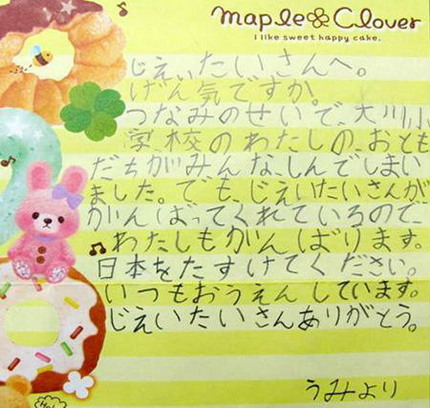 maple Clover
I like sweet happy cake.
じえいたいさんへ。
げん気ですか。
つなみのせいで、大川小
学校のわたしの、おとも
だちがみんな、しんでしまい
ました。でも、じえいたいさんが
がんばってくれているので、
わたしもがんばります。
日本をたすけてください。
いつもおうえんしています。
じえいたいさんありがとう。
うみより